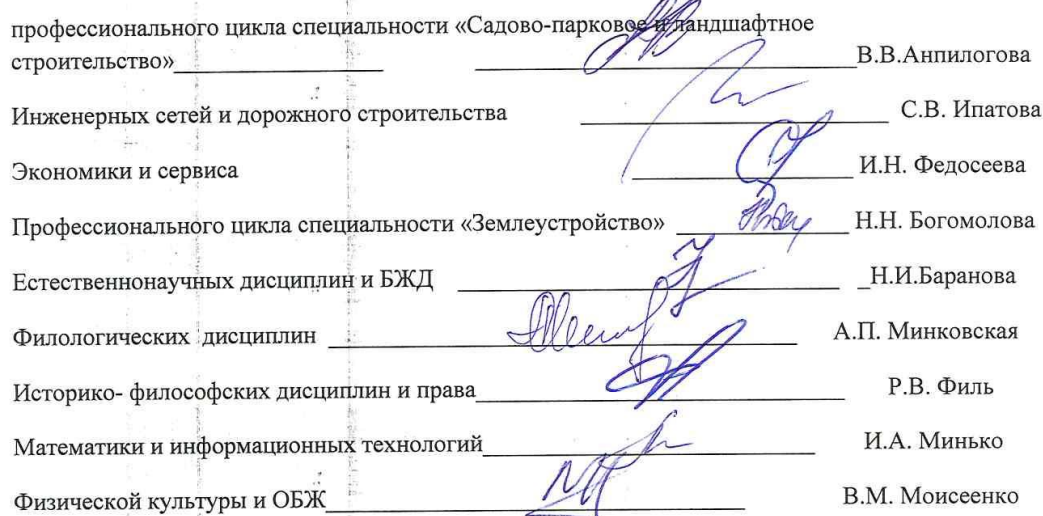 профессионального цикла специальности «Садово-парковое и ландшафтное
строительство»____________________ ____________________В.В.Анпилогова
Инженерных сетей и дорожного строительства ____________________ С.В. Ипатова
Экономики и сервиса ____________________ И.Н. Федосеева
Профессионального цикла специальности «Землеустройство» ____________ Н.Н. Богомолова
Естественнонаучных дисциплин и БЖД ____________________ _Н.И.Баранова
Филологических дисциплин ____________________ А.П. Минковская
Историко- философских дисциплин и права____________________ Р.В. Филь
Математики и информационных технологий____________________ И.А. Минько
Физической культуры и ОБЖ____________________ В.М. Моисеенко